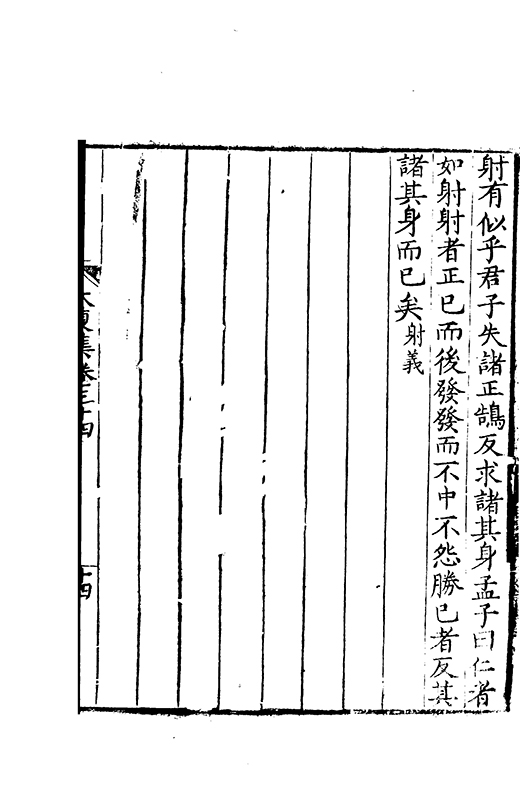 射有似乎君子失諸正鵠反求諸其身孟子曰仁者
如射射者正已而後發發而不中不怨勝已者反其
諸其身而已矣射義
大復集卷三十四
十四